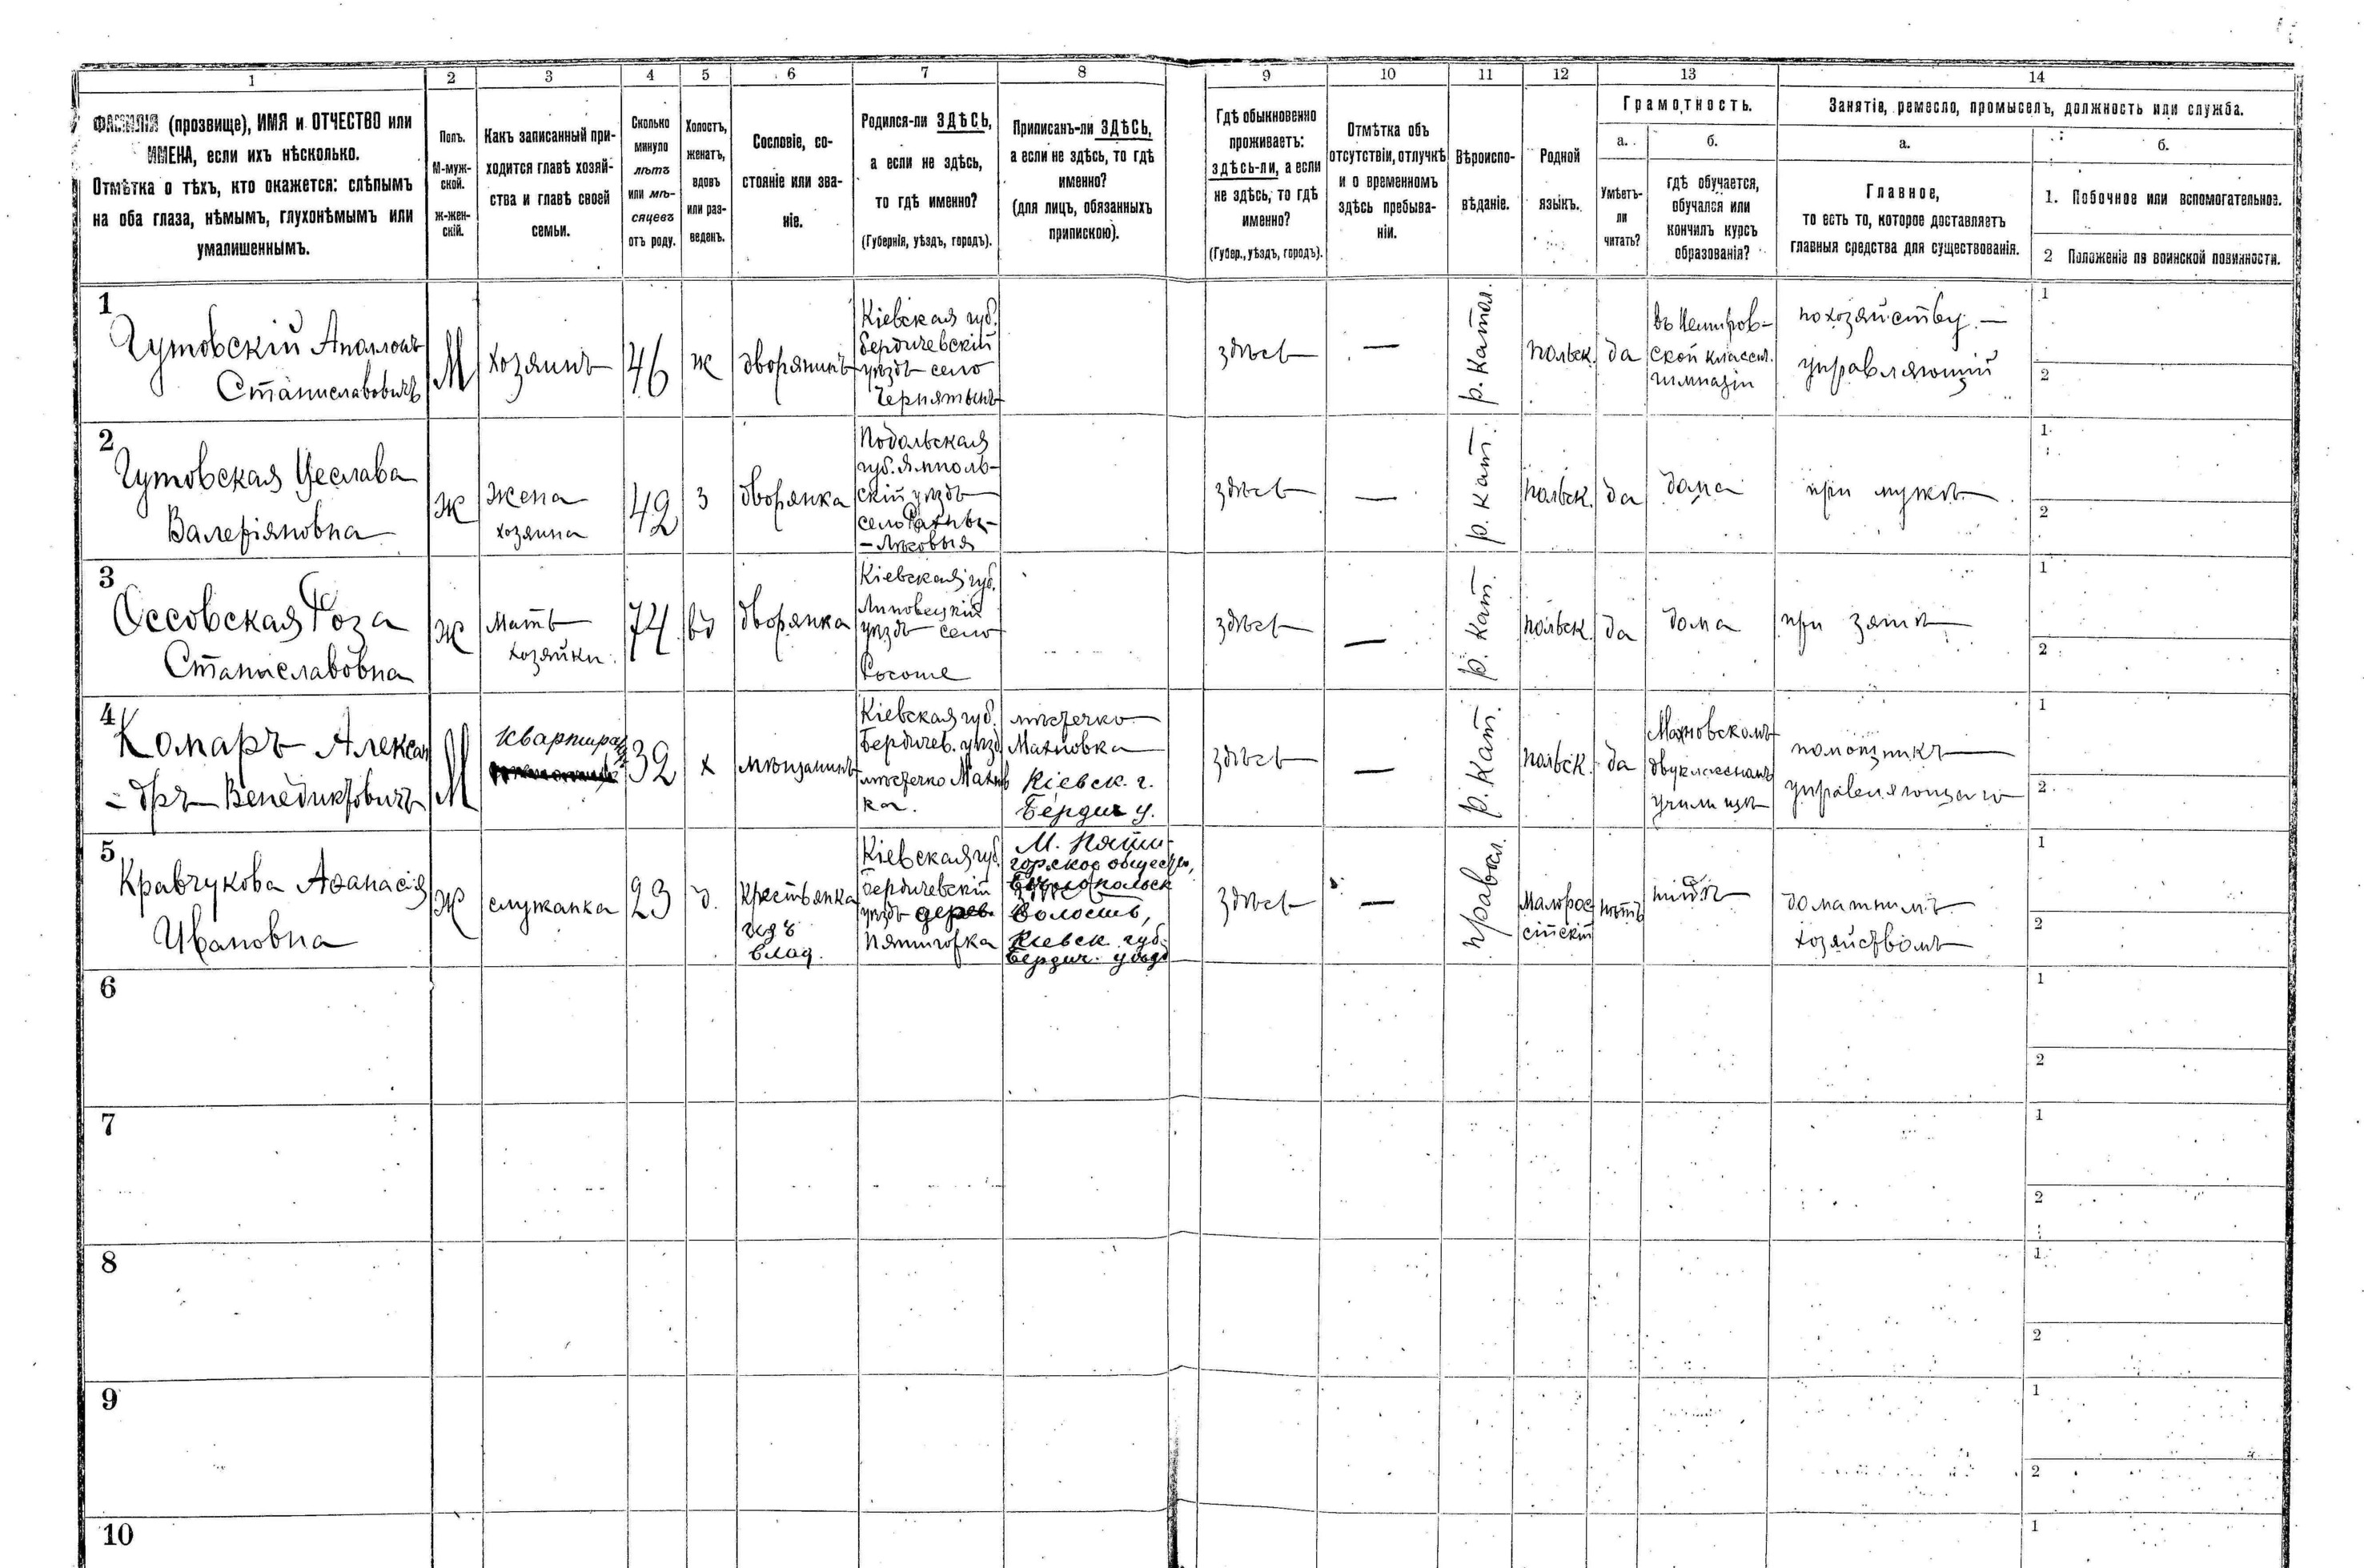 1 2 3 4 5 6 7 8 9 10 11 12 13 14
ФАМИЛІЯ (прозвище), ИМЯ и ОТЧЕСТВО или
ИМЕНА, если ихъ нѣсколько.
Отмѣтка о тѣхъ, кто окажется: слѣпымъ
на оба глаза, нѣмымъ, глухонѣмымъ или
умалишеннымъ.
Полъ.
М-муж-
ской.
Ж-жен-
скій.
Какъ записанный при-
ходится главѣ хозяй-
ства и главѣ своей
семьи.
Сколько
минуло
лѣтъ
или мѣ-
сяцевъ
отъ роду.
Холостъ,
женатъ,
вдовъ
или раз-
веденъ.
Сословіе, со-
стояніе или зва-
ніе.
Родился-ли ЗДѢСЬ,
а если не здѣсь,
то гдѣ именно?
(Губернія, уѣздъ, городъ).
Приписанъ-ли ЗДѢСЬ,
а если не здѣсь, то гдѣ
именно?
(для лицъ, обязанныхъ
припискою).
Гдѣ обыкновенно
проживаетъ:
здѣсь-ли, а если
не здѣсь, то гдѣ
именно?
(Губер., уѣздъ, городъ).
Отмѣтка объ
отсутствіи, отлучкѣ
и о временномъ
здѣсь пребыва-
ніи.
Вѣроиспо-
вѣданіе.
Родной
языкъ.
Грамотность.
а.
Умѣетъ-
ли
читать?
б.
гдѣ обучается,
обучался или
кончилъ курсъ
образованія?
Занятіе, ремесло, промыселъ, должность или служба.
а.
Главное,
то есть то, которое доставляетъ
главныя средства для существованія.
б.
1. Побочное или вспомогательное.
2 Положеніе по воинской повинности.
1
Гутовскій Аполлонъ
Станиславовичъ
М
хозяинъ
46
ж
дворянинъ
Кіевская губ.
Бердичевскій
уѣздъ село
Чернятынъ
здѣсь
—
р. катол.
польск.
да
въ Немиров-
ской классич.
гимназіи
по хозяйству —
управляющій
1
2
2
Гутовская Цеслава
Валеріяновна
Ж
жена
хозяина
42
з
дворянка
Подольская
губ. Ямполь-
скій уѣздъ
село
здѣсь
—
р. кат.
польск.
да
дома
при мужѣ
1
2
3
Оссовская Роза
Станиславовна
Ж
мать
хозяйки
74
вд
дворянка
Кіевская губ.
Липовецкій
уѣздъ село
Росоше
здѣсь
—
р. кат.
польск.
да
дома
при зятѣ
1
2
4
Комаръ Алексан
-дръ Венедиктовичъ
М
32
х
мѣщанинъ
Кіевская губ.
Бердичев. уѣзд
мѣстечко Махнов
ка.
мѣстечко
Махновка
Кіевск. г.
Бердич у.
здѣсь
—
р. кат.
польск.
да
Махновскомъ
двуклассномъ
училищѣ
помощникъ
управляющаго
1
2
5
Кравчукова Аѳанасія
Ивановна
Ж
служанка
23
д.
крестьянка
изъ
влад.
Кіевская губ.
Бердичевскій
уѣздъ дерев.
Пятигорка
М. Пяти-
горское общество,
Волость,
Кіевск. губ.
Бердич. уѣзд
здѣсь
—
правосл.
Малорос
сійскій
нѣтъ
домашнимъ
хозяйствомъ
1
2
6
1
2
7
1
2
8
1
2
9
1
2
10
1